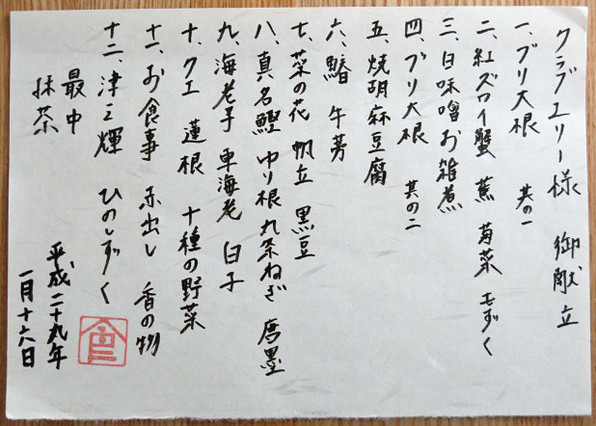 クラブエリー様 御献立
一、ブリ大根 其の一
二、紅ズワイ蟹 蕪 菊菜 もずく
三、白味噌お雑煮
四、ブリ大根 其の二
五、焼胡麻豆腐
六、鰆 牛蒡
七、菜の花 帆立 黒豆
八、真名鰹 ゆり根 九条ねぎ 唐墨
九、海老芋 車海老 白子
十、クエ 蓮根 十種の野菜
十一、お食事 赤出し 香の物
十二、津之輝 ひのしずく
最中
抹茶
平成二十九年
一月十六日